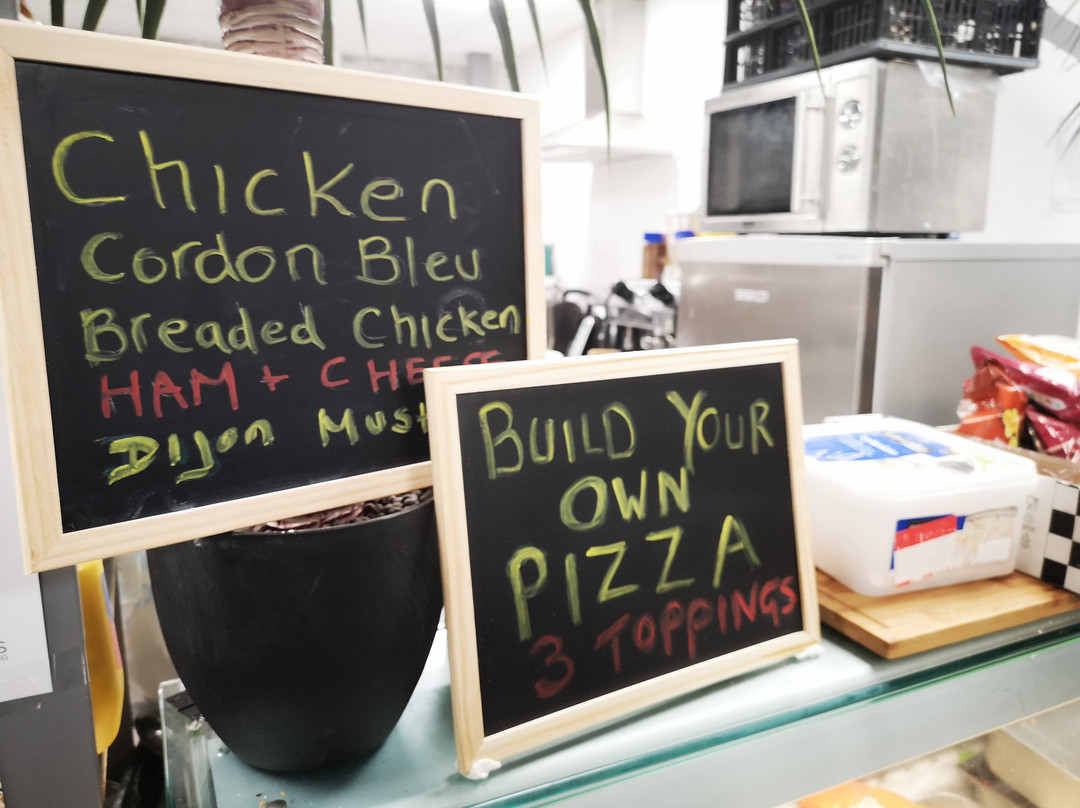 Chicken
Cordon Bleu
Breaded Chicken
HAM + CHEESE
Dijon Must
BUILD YOUR
OWN
PIZZA
3 TOPPINGS